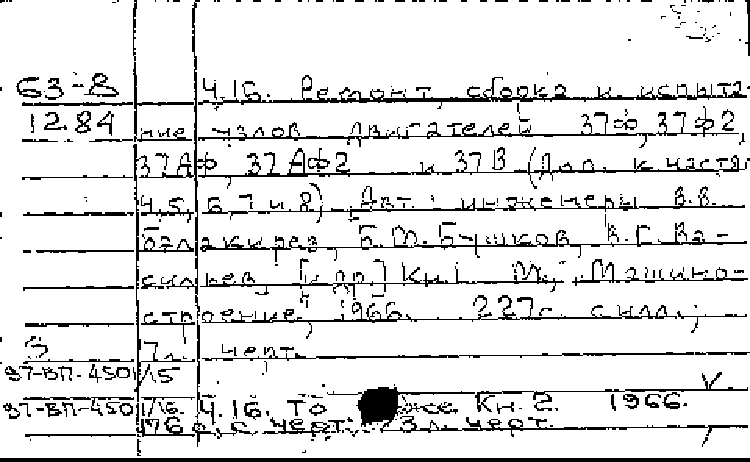 63-8 Ч.16. Ремонт, сборка и испыта-
12.84 ние узлов двигателей 37Ф, 37Ф2,
37АФ, 37АФ2 и 37В (Доп. к частям
4,5,6,7 и 8) Авт.: инженеры В.В.
Балакирев, Б.М. Бушков, В.Г. Ва-
сильев [и др.] Кн.1 М., "Машино-
строение", 1966. 227с. с илл.;
3 7л. черт.
37-ВП-450/15 V
37-ВП-450 1/16. Ч.16. То же Кн.2. 1966.
176с. с черт.; 3л. черт.